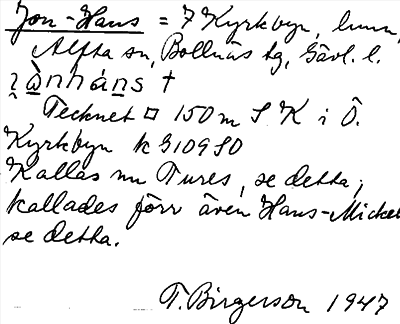 Jon-Hans = 7 Kyrkbyn, hmn,
Alfta sn, Bollnäs tg, Gävl. l.
Tecknet ¤ 150 m S K i Ö.
Kyrkbyn k G109 SO
Kallas nu Tures, se detta;
kallades förr även Hans-Mickel
se detta.
T. Birgerson 1947